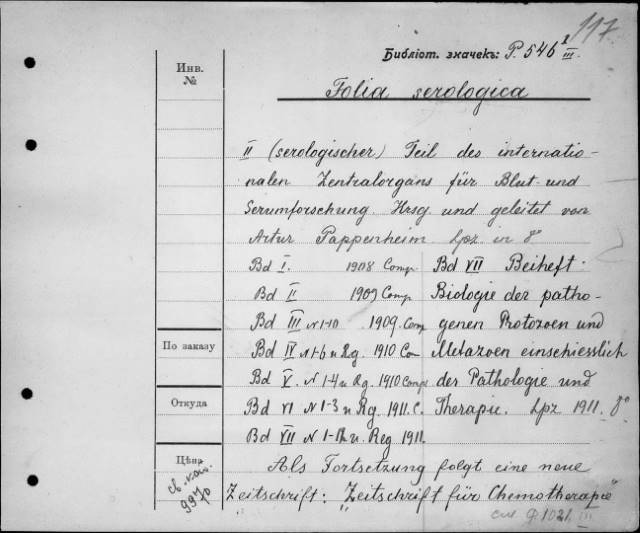 117
Библіот. значекъ: P. 546 I/III.
Инв.
№
Folia serologica
II (serologischer) Teil des internatio-
nalen Zentralorgans für Blut- und
Serumforschung. Hrsg und geleitet von
Artur Pappenheim Lpz in 8°
Bd I. 1908 Comp.
Bd II 1909 Comp
Bd III N 1-10 1909. Comp
Bd IV N 1-6 u Rg. 1910 Com
Bd V. N 1-4 u Rg. 1910 Comp
Bd VI N 1-3 u Rg. 1911. C.
Bd VII N 1-12 u. Reg 1911.
Bd VII Beiheft:
Biologie der patho-
genen Protozoen und
Metazoen einschiesslich
der Pathologie und
Therapie. Lpz 1911. 8°
Als Fortsetzung folgt eine neue
Zeitschrift: "Zeitschrift für Chemotherapie"
см Ф. 1021 III
По заказу
Откуда
Цѣна
св.